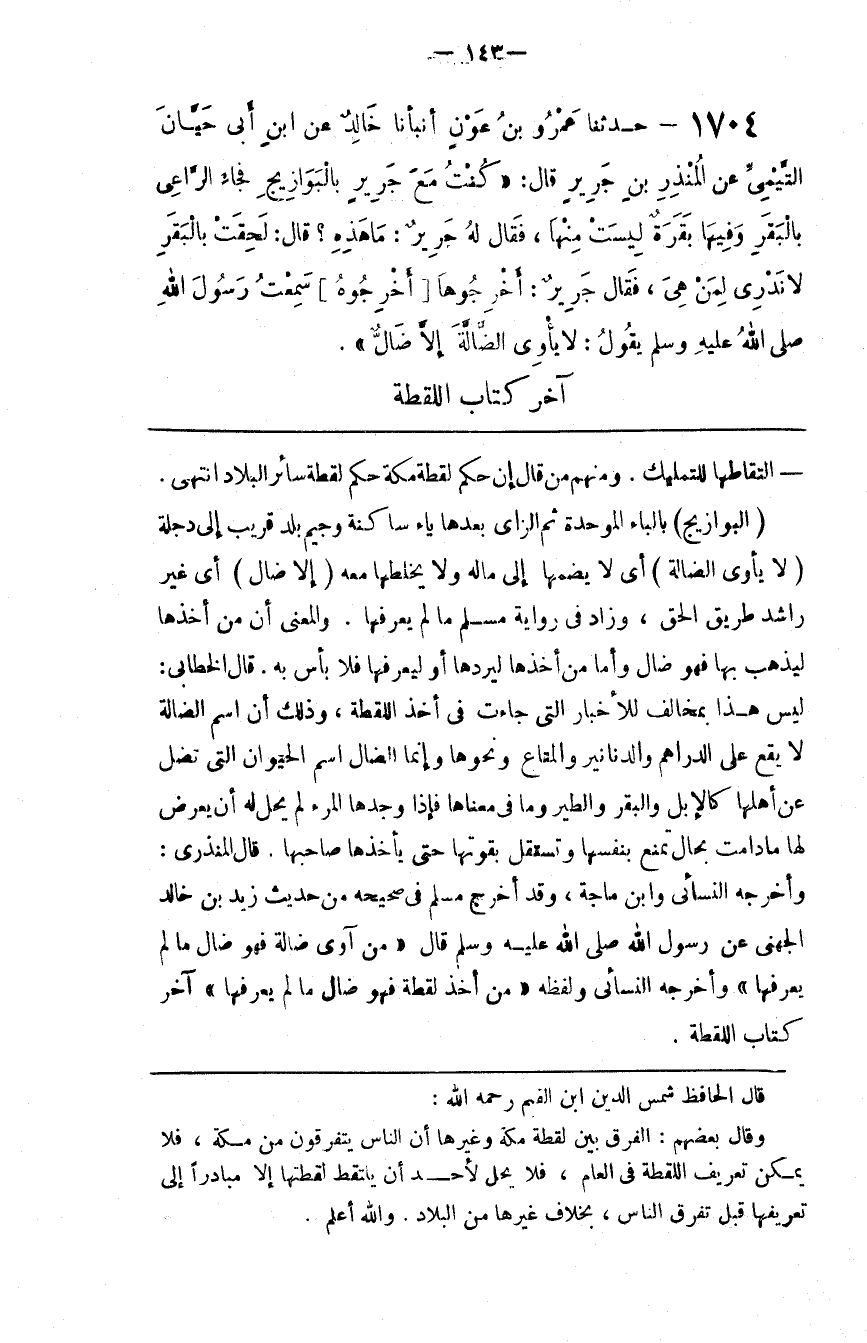 — ١٤٣ —
١٧٠٤ — حدثنا عَمْرُو بنُ عَوْنٍ أنبأنا خَالِدٌ عن ابنِ أَبِى حَيَّانَ
التَّيْمِىِّ عن الْمُنْذِرِ بنِ جَرِيرٍ قال: « كُنْتُ مَعَ جَرِيرٍ بالْبَوَازِيجِ فجَاءَ الرَّاعِى
بالْبَقَرِ وَفِيهَا بَقَرَةٌ لَيسَتْ مِنْهَا ، فَقال لهُ جَرِيرٌ : مَاهَذِهِ ؟ قال: لَحِقَتْ بالْبَقَرِ
لانَدْرِى لِمَنْ هِىَ ، فقَال جَرِيرٌ : أَخْرِجُوهَا [ أَخْرِجُوهُ ] سَمِعْتُ رَسُولَ اللهِ
صلى اللهُ عليهِ وسلم يقُولُ : لايأْوِى الضَّالَّةَ إلاَّ ضَالٌّ » .
آخر كتاب اللقطة
— التقاطها للتمليك . ومنهم من قال إن حكم لقطة مكة حكم لقطة سائر البلاد انتهى .
( البوازيج ) بالباء الموحدة ثم الزاى بعدها ياء ساكنة وجيم بلد قريب إلى دجلة
( لا يأوى الضالة ) أى لا يضمها إلى ماله ولا يخلطها معه ( إلا ضال ) أى غير
راشد طريق الحق ، وزاد فى رواية مسلم ما لم يعرفها . والمعنى أن من أخذها
ليذهب بها فهو ضال وأما من أخذها ليردها أو ليعرفها فلا بأس به . قال الخطابى :
ليس هذا بمخالف للأخبار التى جاءت فى أخذ اللقطة ، وذلك أن اسم الضالة
لا يقع على الدراهم والدنانير والمتاع ونحوها وإنما الضال اسم الحيوان التى تضل
عن أهلها كالإبل والبقر والطير وما فى معناها فإذا وجدها المرء لم يحل له أن يعرض
لها مادامت بحال تمنع بنفسها وتستقل بقوتها حتى يأخذها صاحبها . قال المنذرى :
وأخرجه النسائى وابن ماجة ، وقد أخرج مسلم فى صحيحه من حديث زيد بن خالد
الجهنى عن رسول الله صلى الله عليه وسلم قال « من آوى ضالة فهو ضال ما لم
يعرفها » وأخرجه النسائى ولفظه « من أخذ لقطة فهو ضال ما لم يعرفها » آخر
كتاب اللقطة .
قال الحافظ شمس الدين ابن القيم رحمه الله :
وقال بعضهم : الفرق بين لقطة مكة وغيرها أن الناس يتفرقون من مكة ، فلا
يمكن تعريف اللقطة فى العام ، فلا يحل لأحد أن يلتقط لقطتها إلا مبادراً إلى
تعريفها قبل تفرق الناس ، بخلاف غيرها من البلاد . والله أعلم .